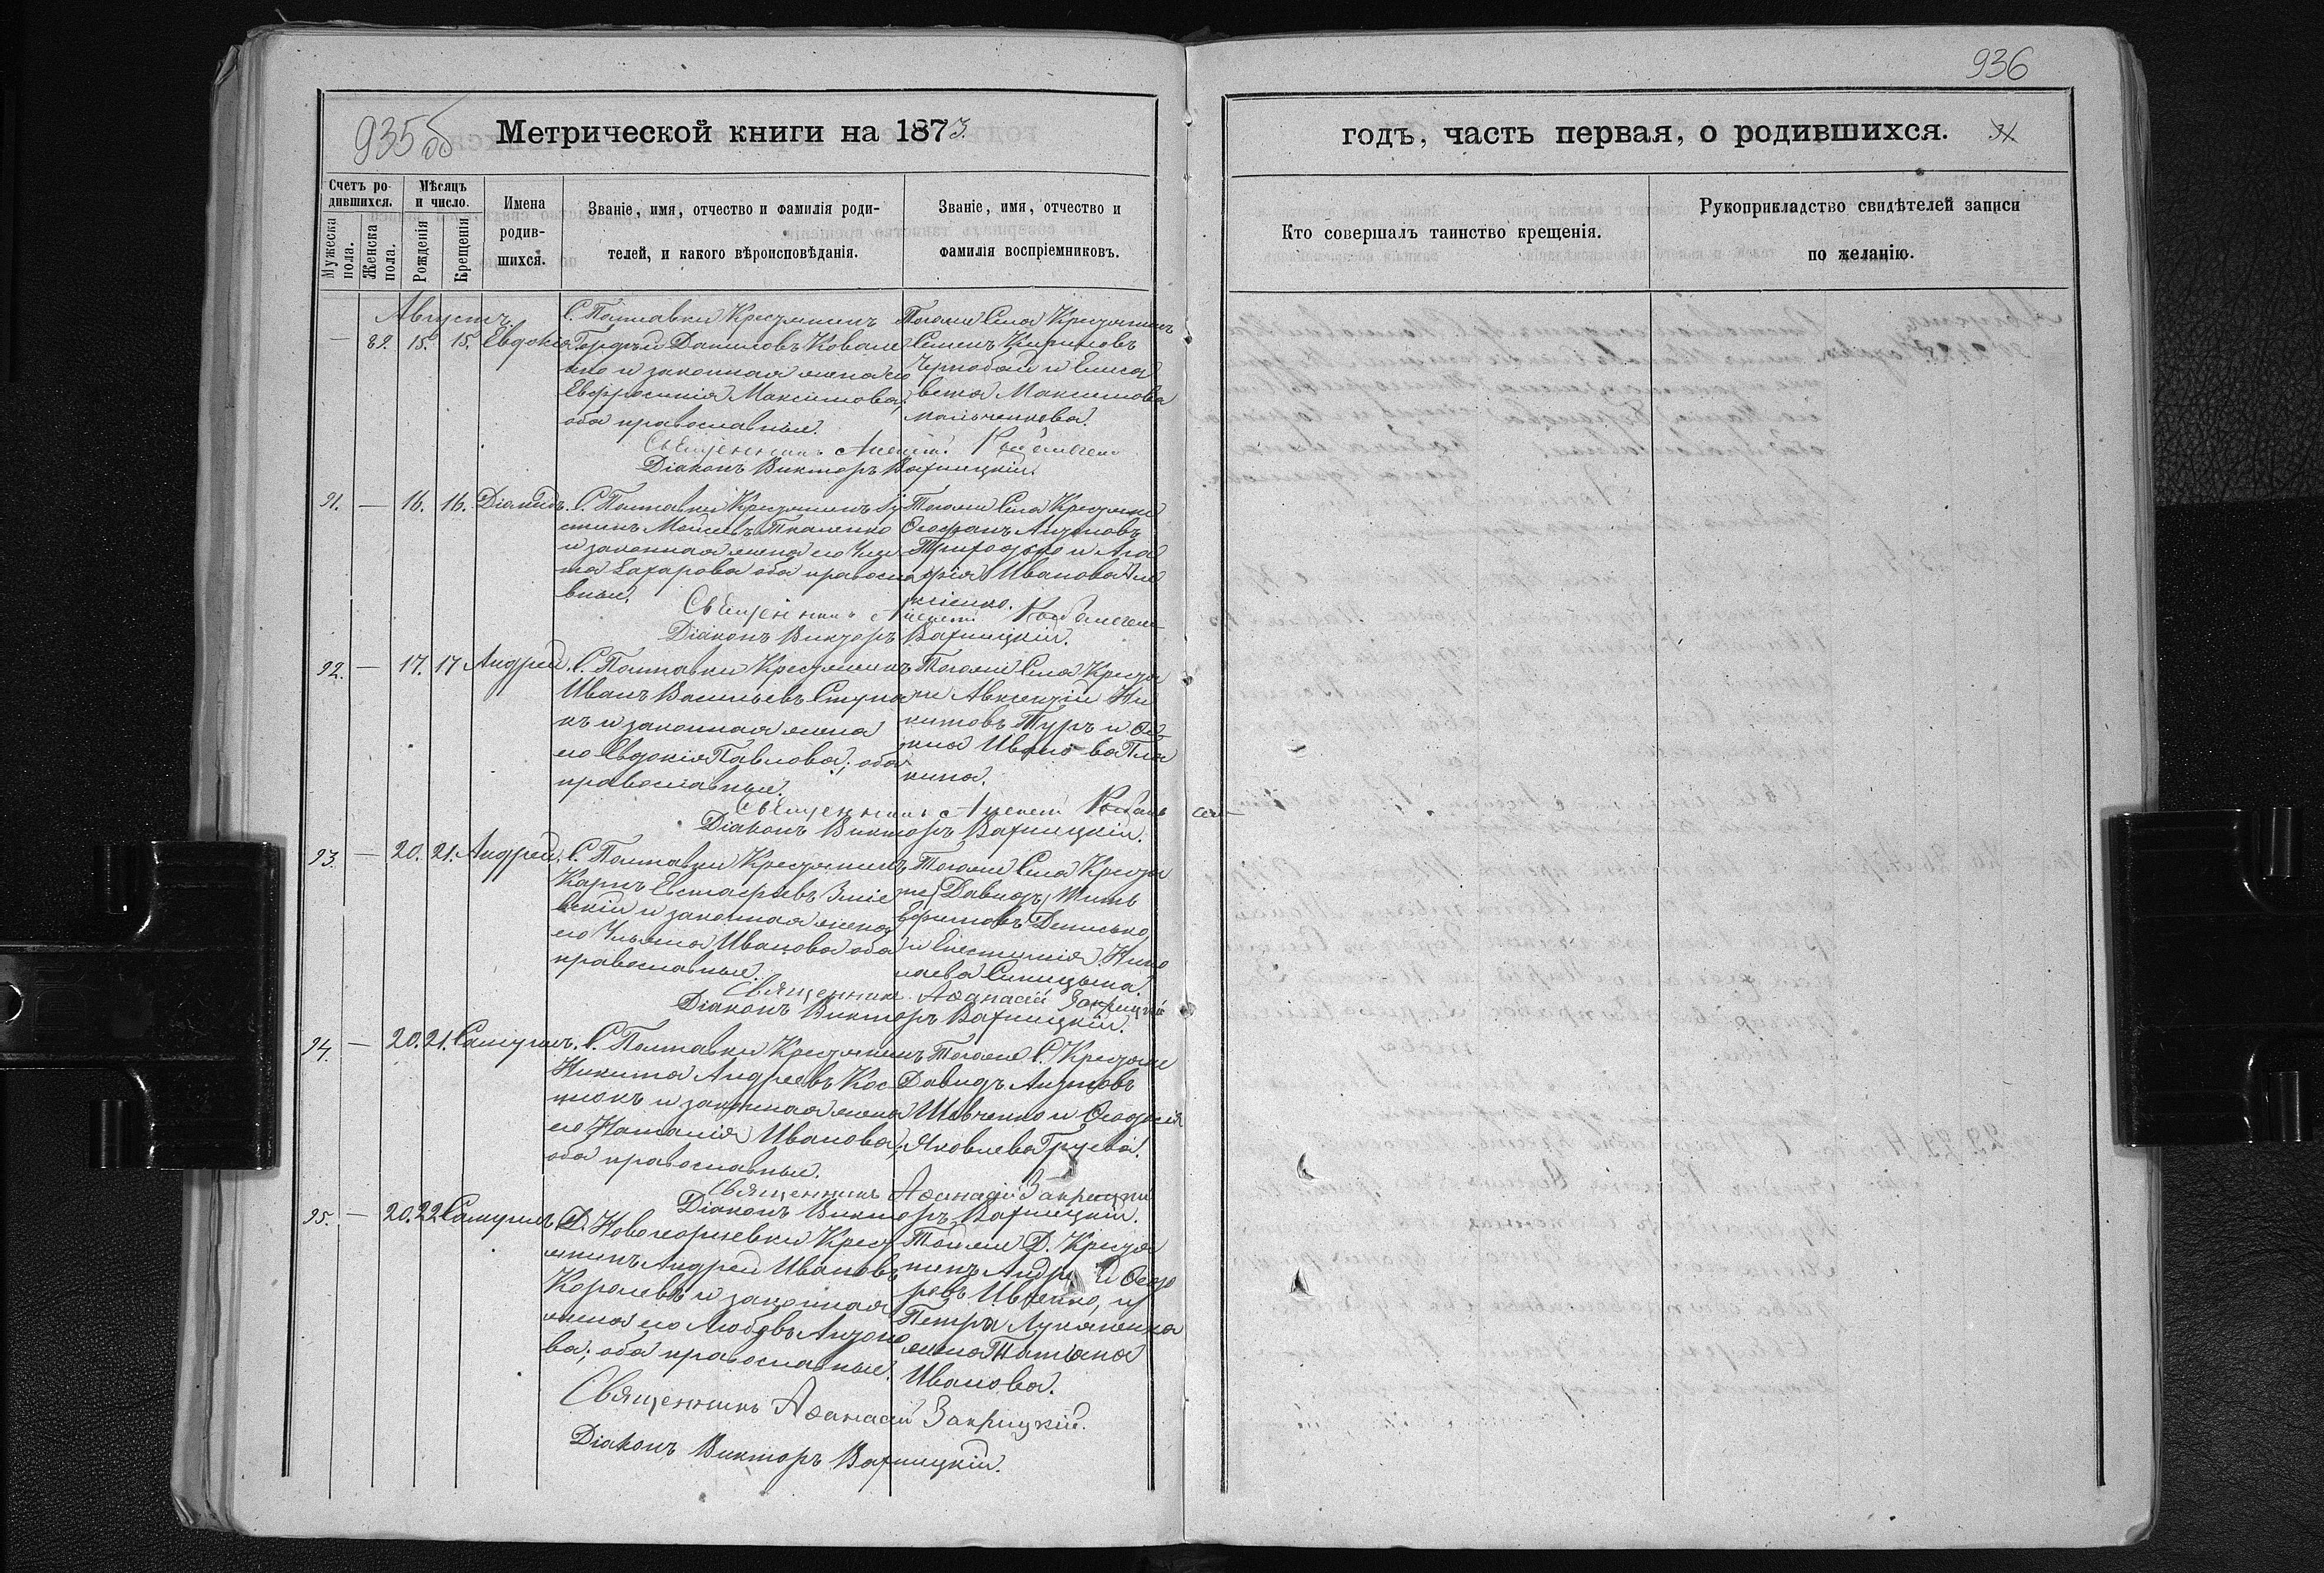 936
935об
Метрической книги на 1873.
годъ, часть первая, о родившихся.
Счетъ ро-
дившихся.
Мужеска
пола.
Женска
пола.
Мѣсяцъ
и число.
Рожденія
Крещенія
Имена
родив-
шихся.
Званіе, имя, отчество и фамилія роди-
телей, и какого вѣроисповѣданія.
Званіе, имя, отчество и
фамилія воспріемниковъ.
Кто совершалъ таинство крещенія.
Рукоприкладство свидѣтелей записи
по желанію.
Августъ.
— 89. 15. 15. Евдокія
С. Полтавки Крестьянинъ
Гордѣй Даниловъ Ковале
нко и законная жена его
Евфросинія Максимова,
оба православные.
Тогоже Села Крестьянинъ
Семенъ Кириловъ
Чернобай и Елиса
вета Максимова
Мальченкова.
Священникъ Алексій
Діаконъ Викторъ Варницкій.
91. — 16. 16. Діомидъ.
С. Полтавки Крестьянинъ Іу
стинъ Моисеевъ Ткаченко
и законная жена его Улья
на Захарова оба правосла
вные.
Тогоже Села Крестьяне
Феофанъ Антоновъ
Приходько и Ага
фія Иванова
Священникъ Алексій
Діаконъ Викторъ Варницкій.
92. — 17. 17 Андрей.
С. Полтавки Крестьянинъ
Иванъ Васильевъ Ступа
къ и законная жена
его Евдокія Павлова; оба
православные.
Тогоже Села Крестья
не Авксентій Ни
китовъ Туръ и
Иванова
Священникъ Алексій
Діаконъ Викторъ Варницкій.
93. — 20. 21. Андрей.
С. Полтавки Крестьянинъ
Карпъ Евстафіевъ Зміе
вскій и законная жена
его Ульяна Иванова оба
православные.
Тогоже Села Крестья
не (Давидъ) Тить
Ефимовъ Денисько
и Евстинія Нико
лаева Синицына.
Священникъ Аѳанасій Закрицкій
Діаконъ Викторъ Варницкій.
94. — 20. 21. Самуилъ.
С. Полтавки Крестьянинъ
Никита Андреевъ Кос
тюкъ и законная жена
его Наталія Иванова,
оба православные.
Тогоже С. Крестьяне
Давидъ Антоновъ
Шевченко и Феодосія
Яковлева
Священникъ Аѳанасій Закрицкій
Діаконъ Викторъ Варницкій.
95. — 20. 22 Самуилъ
Д. Новогоріевки Крест
янинъ Андрей Ивановъ
Королевъ и законная
жена его Любовь Антоно
ва; оба православные.
Тойже Д. Крестья
нинъ Андрей Феодо
ровъ Ивченко, и
Петра Лукяненка
жена Татіана
Иванова.
Священникъ Аѳанасій Закрицкій.
Діаконъ Викторъ Варницкій.